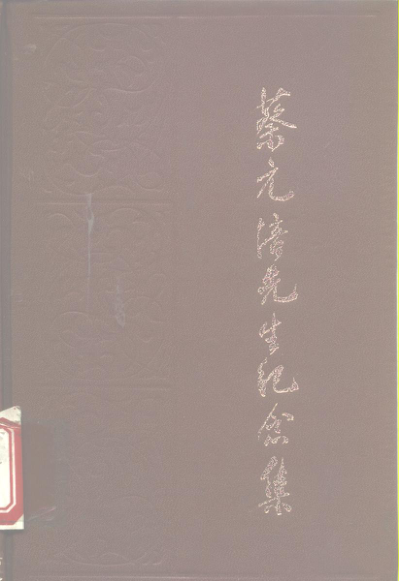 蔡元培先生纪念集